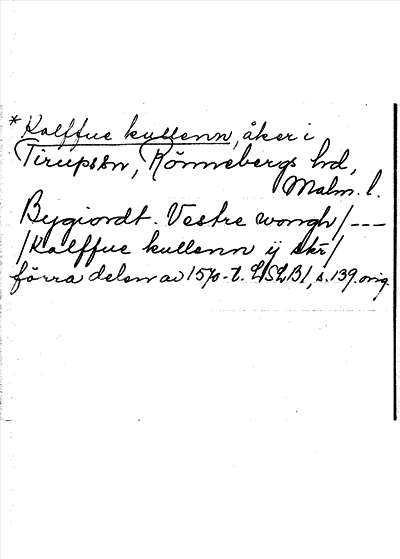 *Kalffue kullenn, åker i
Tirups sn, Rönnebergs hd,
Malm. l.
Bygiordt. Vestre wongh/---
/Kalffue kullenn ij skr/
förra delen av 1570-t. LSLB1, s. 139. orig.